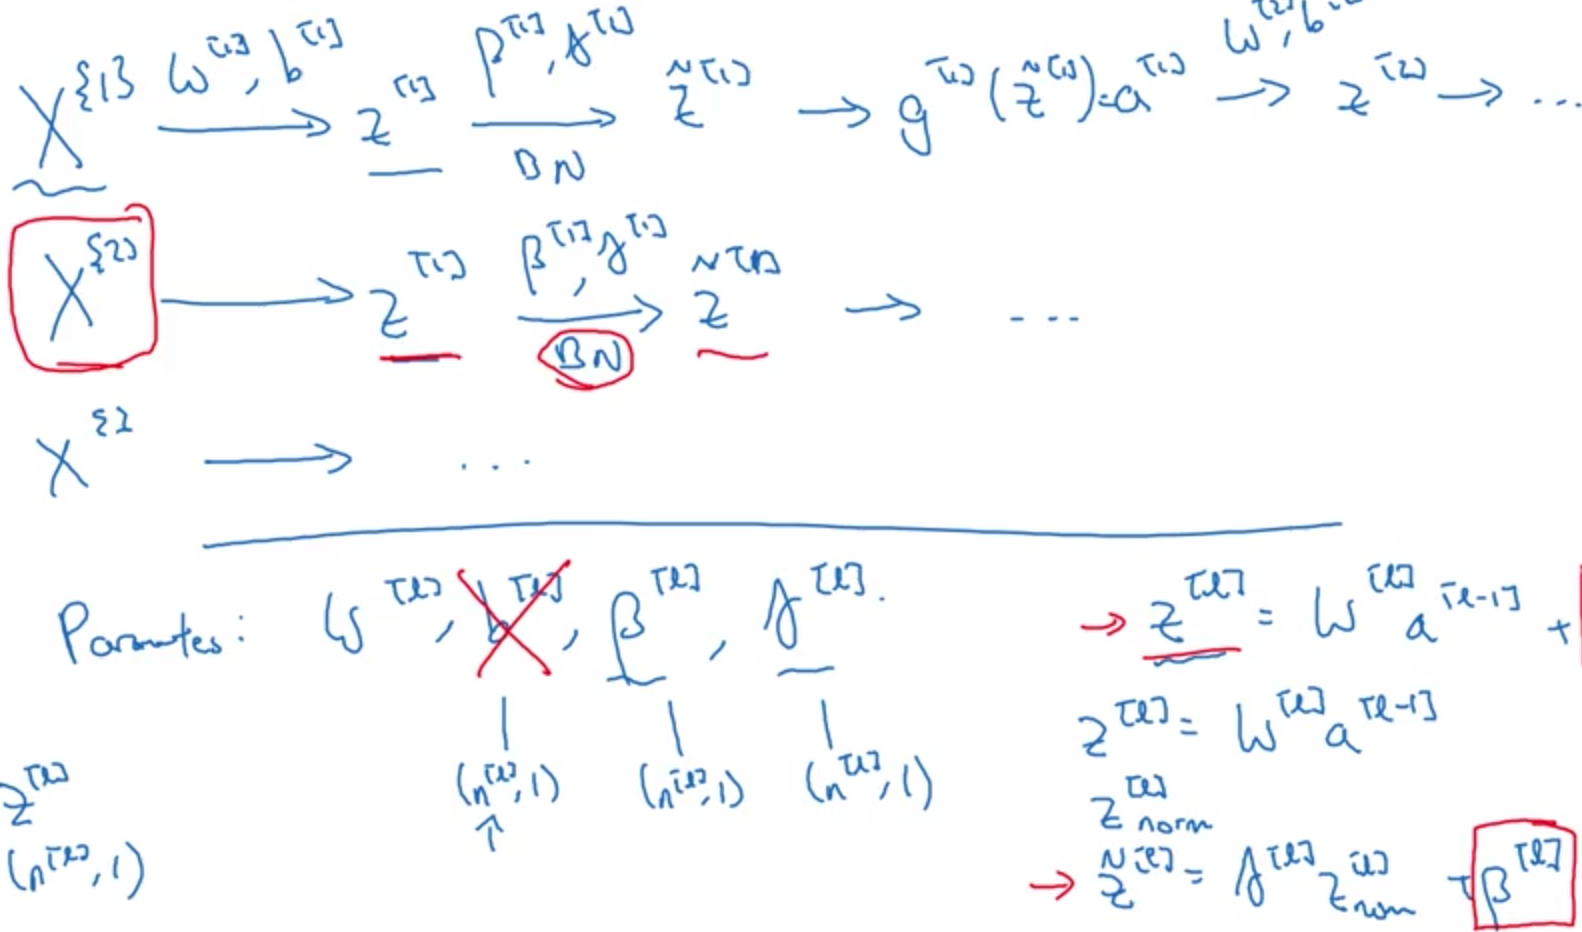 X^{1} W^[1], b^[1] → z^[1] β^[1], γ^[1] → BN z̃^[1] → g^[1](z̃^[1]) = a^[1] W^[2], b^[2] → z^[2] → ...
X^{2} → z^[1] β^[1], γ^[1] → BN z̃^[1] → ...
X^{} → ...
Paramtes: W^[l], b^[l], β^[l], γ^[l].
(n^[l], 1) (n^[l], 1) (n^[l], 1)
↑
z^[l]
(n^[l], 1)
→ z^[l] = W^[l] a^[l-1] +
z^[l] = W^[l] a^[l-1]
z^[l]_norm
→ z̃^[l] = γ^[l] z^[l]_norm + β^[l]